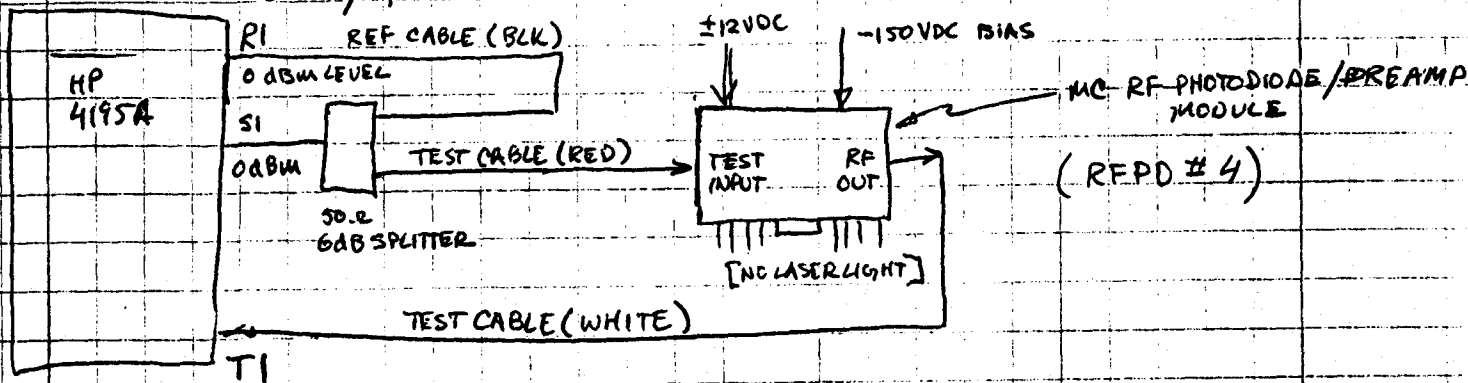 R1 REF CABLE (BLK)
0 dBm LEVEL
HP
4195A
S1
0 dBm
50Ω
6dB SPLITTER
TEST CABLE (RED)
±12VDC
-150VDC BIAS
TEST
INPUT
RF
OUT
MC RF PHOTODIODE/PREAMP
MODULE
(RFPD # 4)
[NO LASER LIGHT]
TEST CABLE (WHITE)
T1